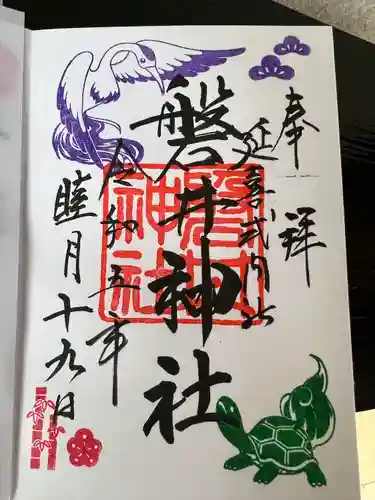 奉拝
延喜式内社
磐井神社
令和五年
睦月十九日
磐井神社